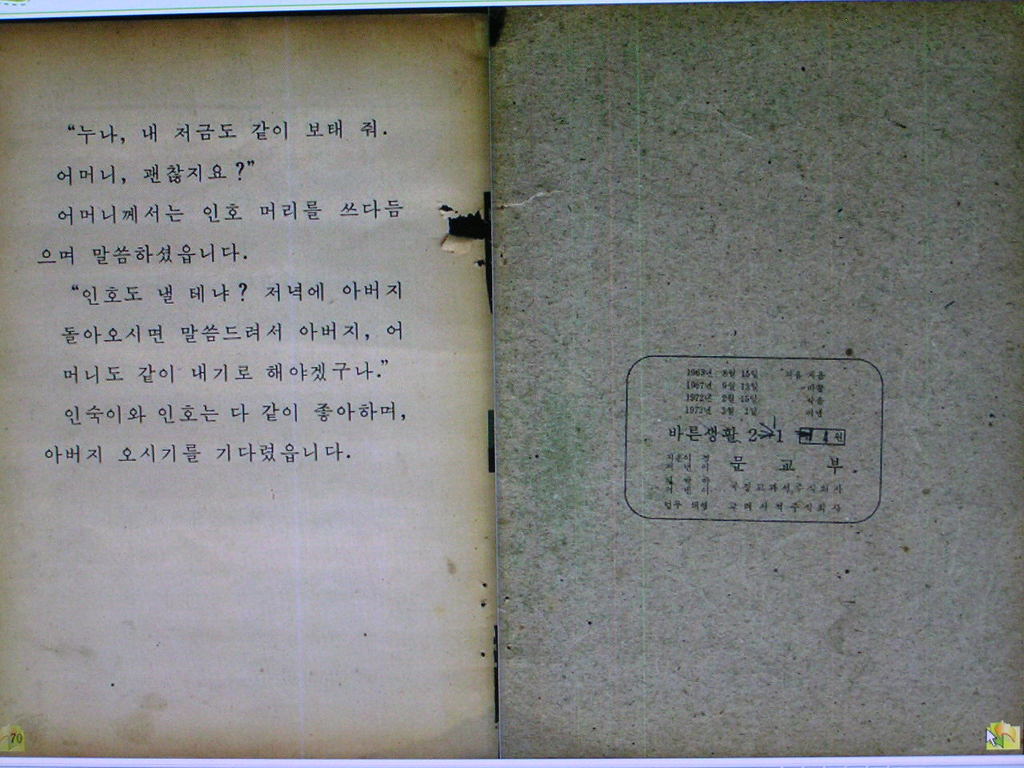 “누나, 내 저금도 같이 보태 줘.
어머니, 괜찮지요?”
어머니께서는 인호 머리를 쓰다듬
으며 말씀하셨읍니다.
“인호도 낼 테냐? 저녁에 아버지
돌아오시면 말씀드려서 아버지, 어
머니도 같이 내기로 해야겠구나.”
인숙이와 인호는 다 같이 좋아하며,
아버지 오시기를 기다렸읍니다.
70
1963년 8월 15일 처음 지음
1967년 9월 13일
1972년 2월 15일 박음
1972년 3월 1일 펴냄
바른생활 2-1
문 교 부
국정교과서주식회사
국정교과서주식회사